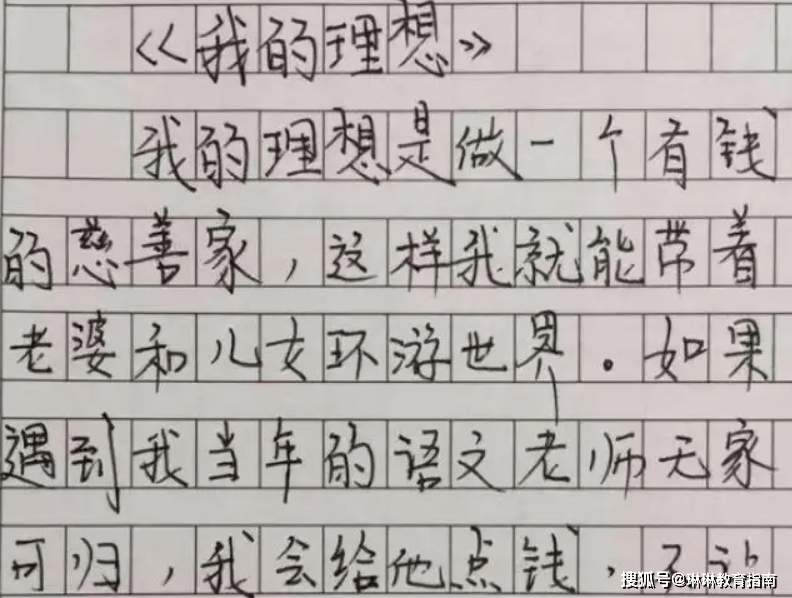 《我的理想》
我的理想是做一个有钱
的慈善家，这样我就能带着
老婆和儿女环游世界。如果
遇到我当年的语文老师无家
可归，我会给他点钱，不让
搜狐号@琳琳教育指南